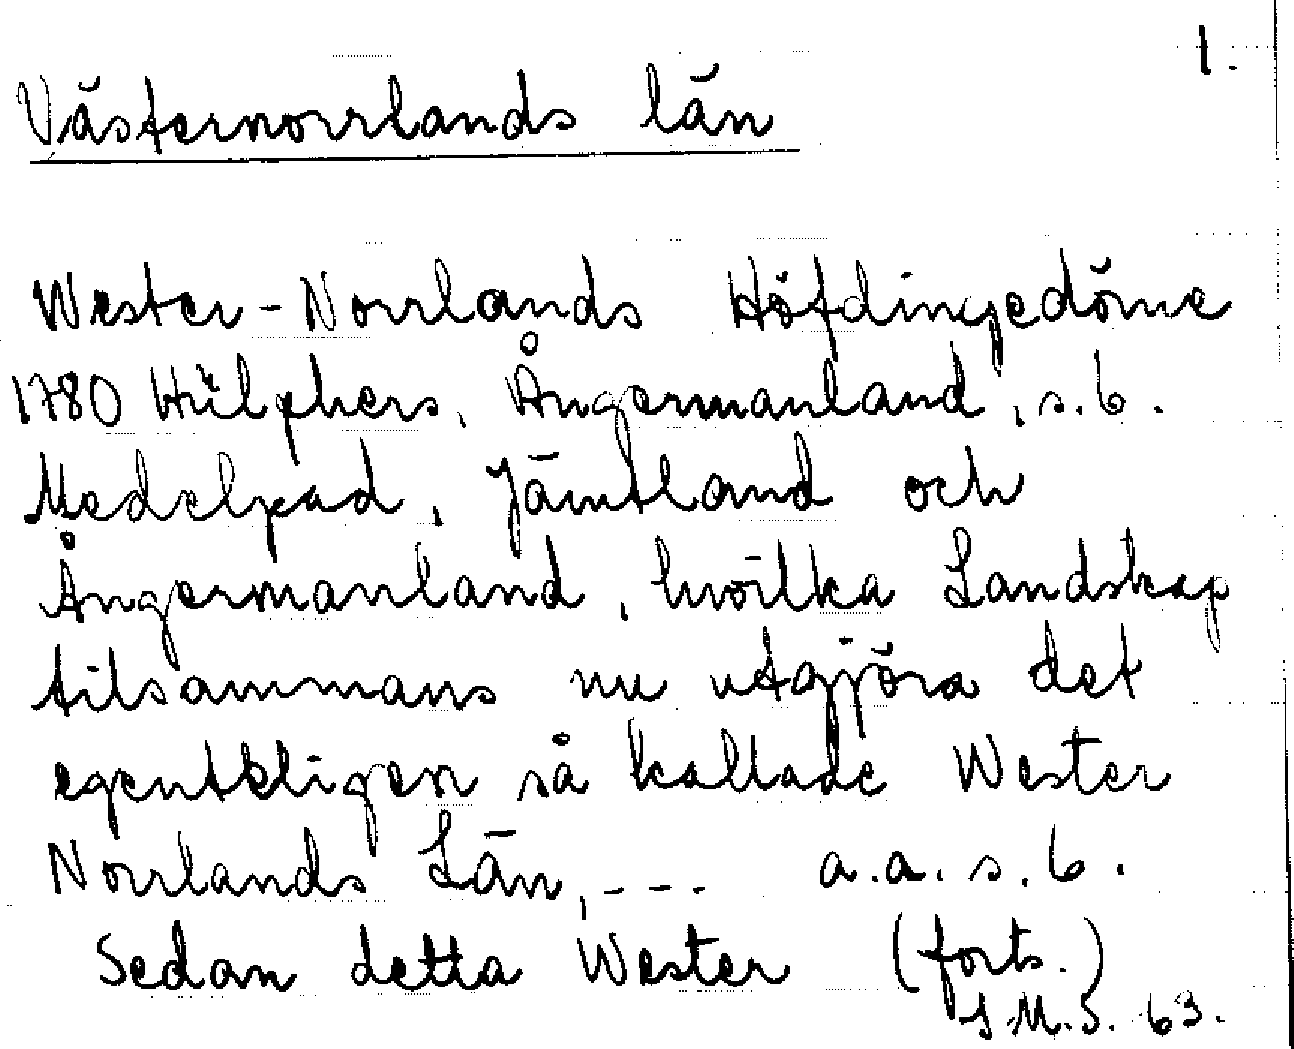 1.
Västernorrlands län
Wester-Norrlands Höfdingedöme
1780 Hülphers, Ångermanland, s. 6.
Medelpad, Jämtland och
Ångermanland, hwilka Landskap
tilsammans nu utgjöra det
egentkligen så kallade Wester
Norrlands Län, --- a.a. s. 6.
Sedan detta Wester (forts.)
S.M.S. 63.